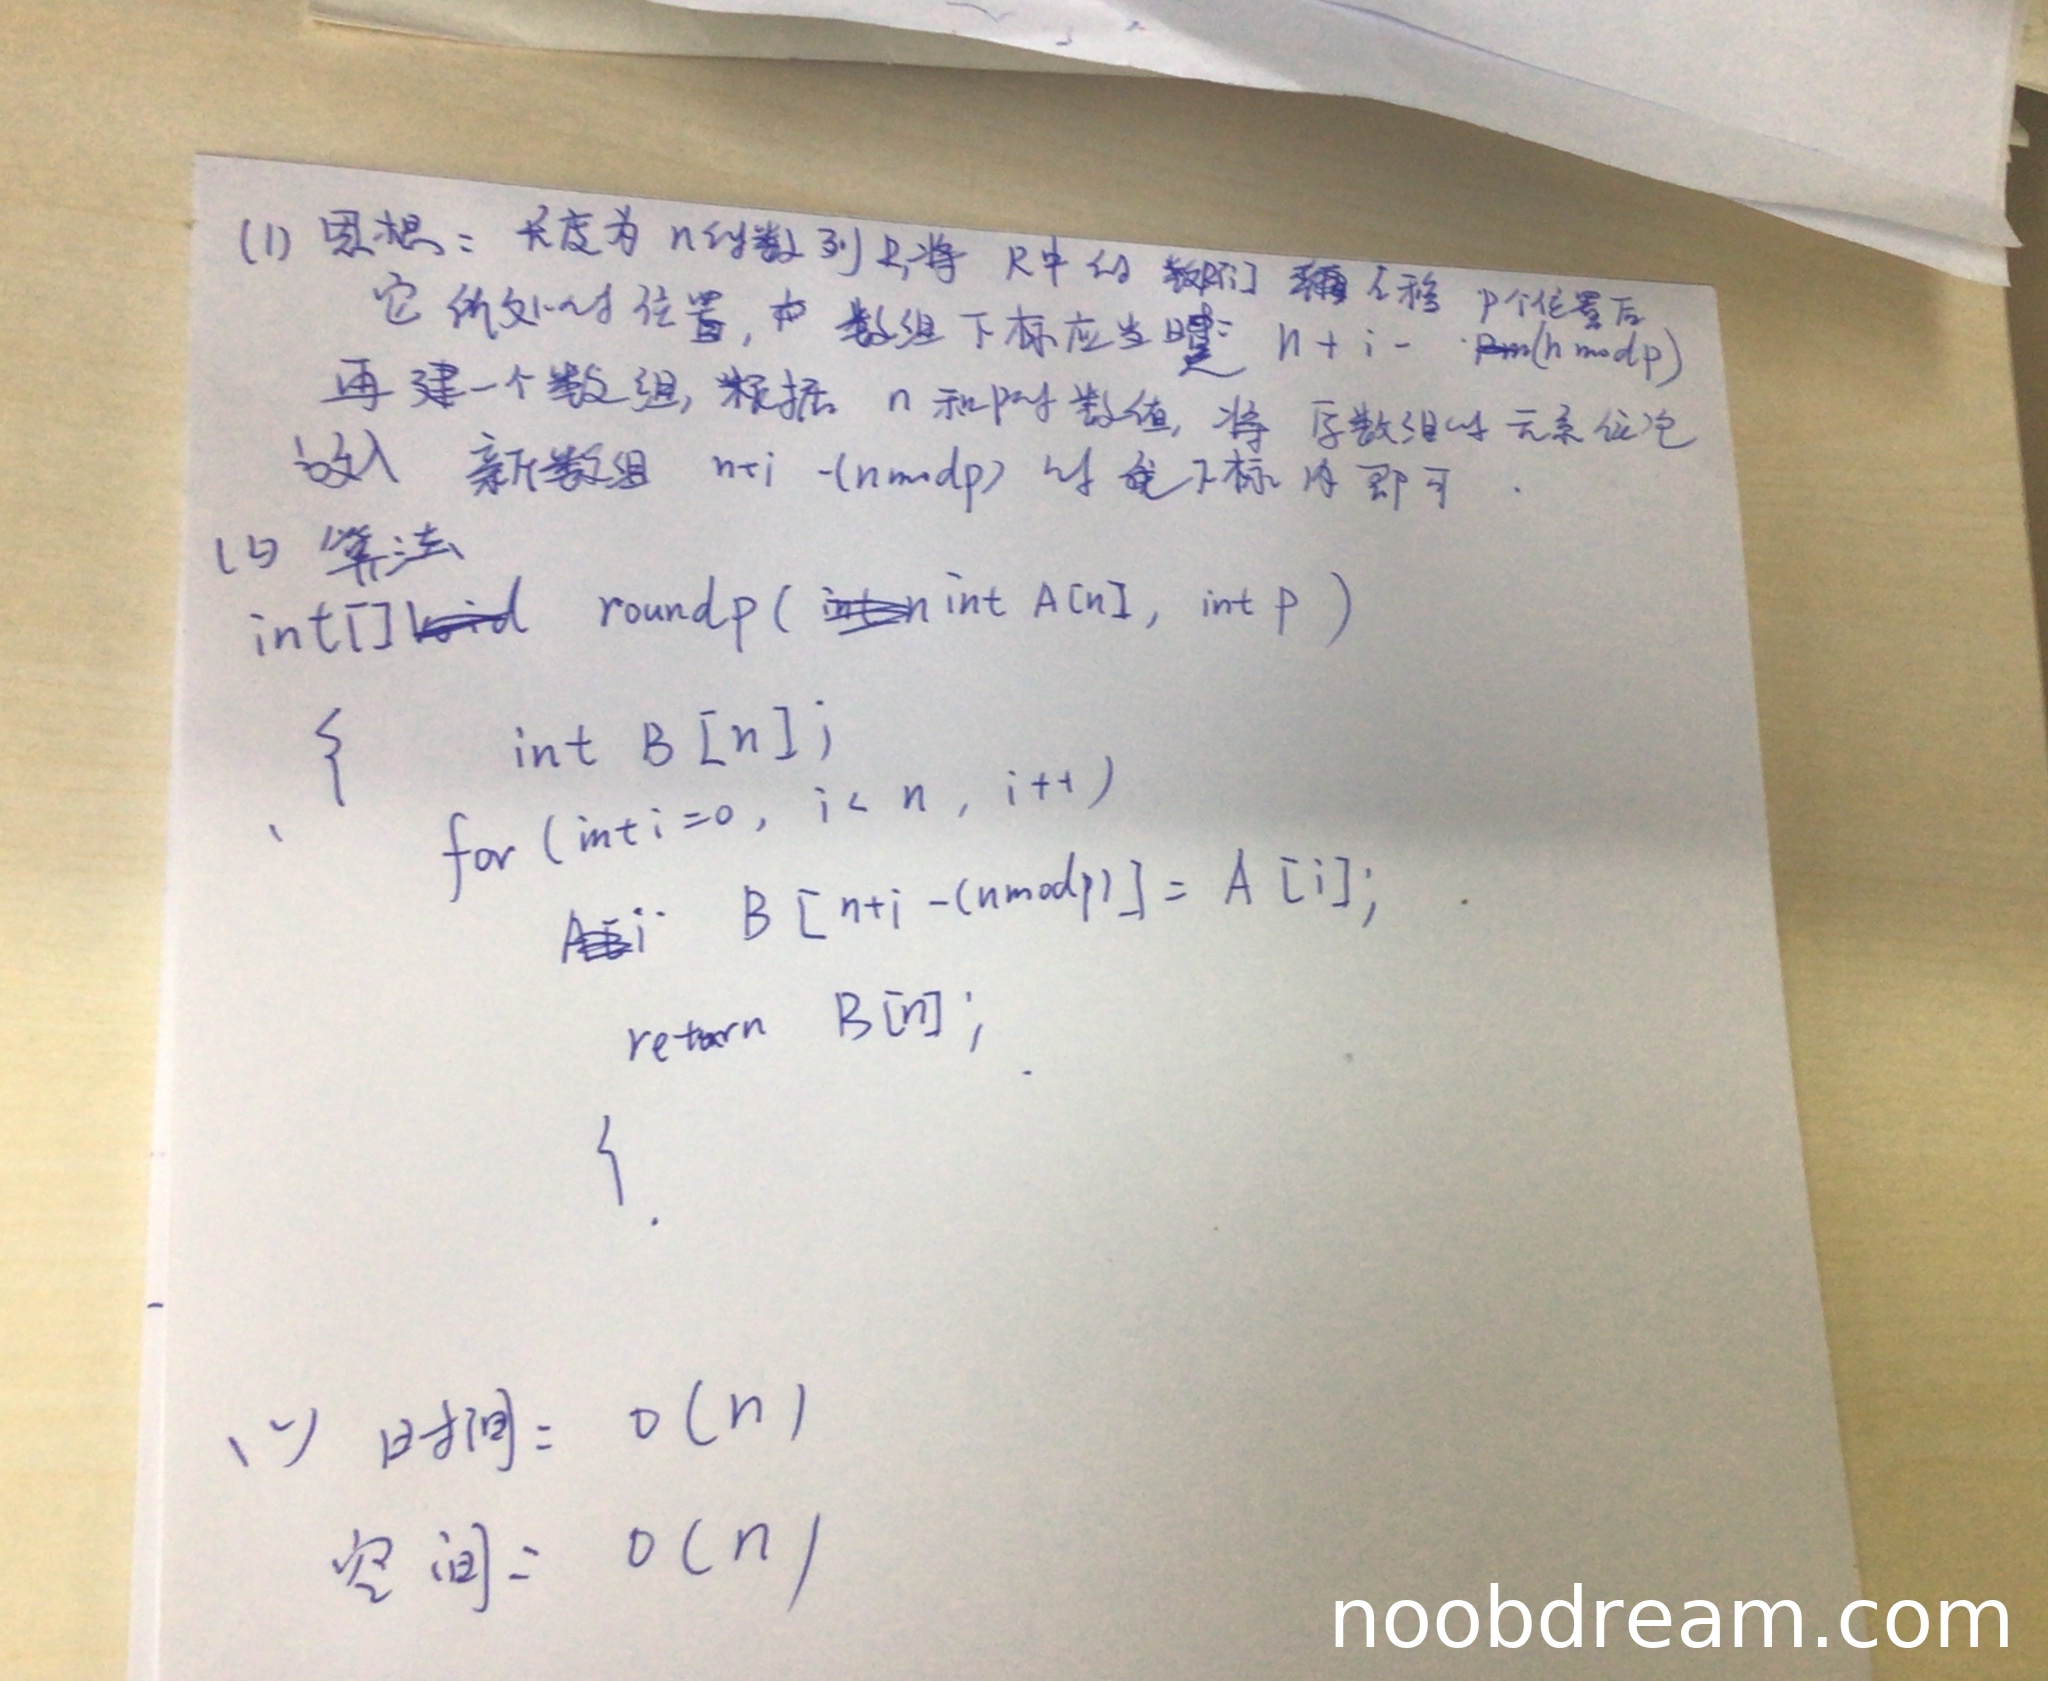 (1) 思想: 长度为 n的数列R,将 R中的 左移 p个位置后
它所处的位置, 数组下标应当是 n+i- (n mod p)
再建一个数组, 根据 n和p的数值, 将 原数组的元素依次
放入 新数组 n+i -(n mod p) 的 下标 内 即可 .
算法
int[] void roundp( int n int A[n], int p )
{ int B[n];
for (int i=0, i< n, i++)
B[n+i -(n mod p)] = A[i];
return B[n];
{
时间: O(n)
空间: O(n)
noobdream.com